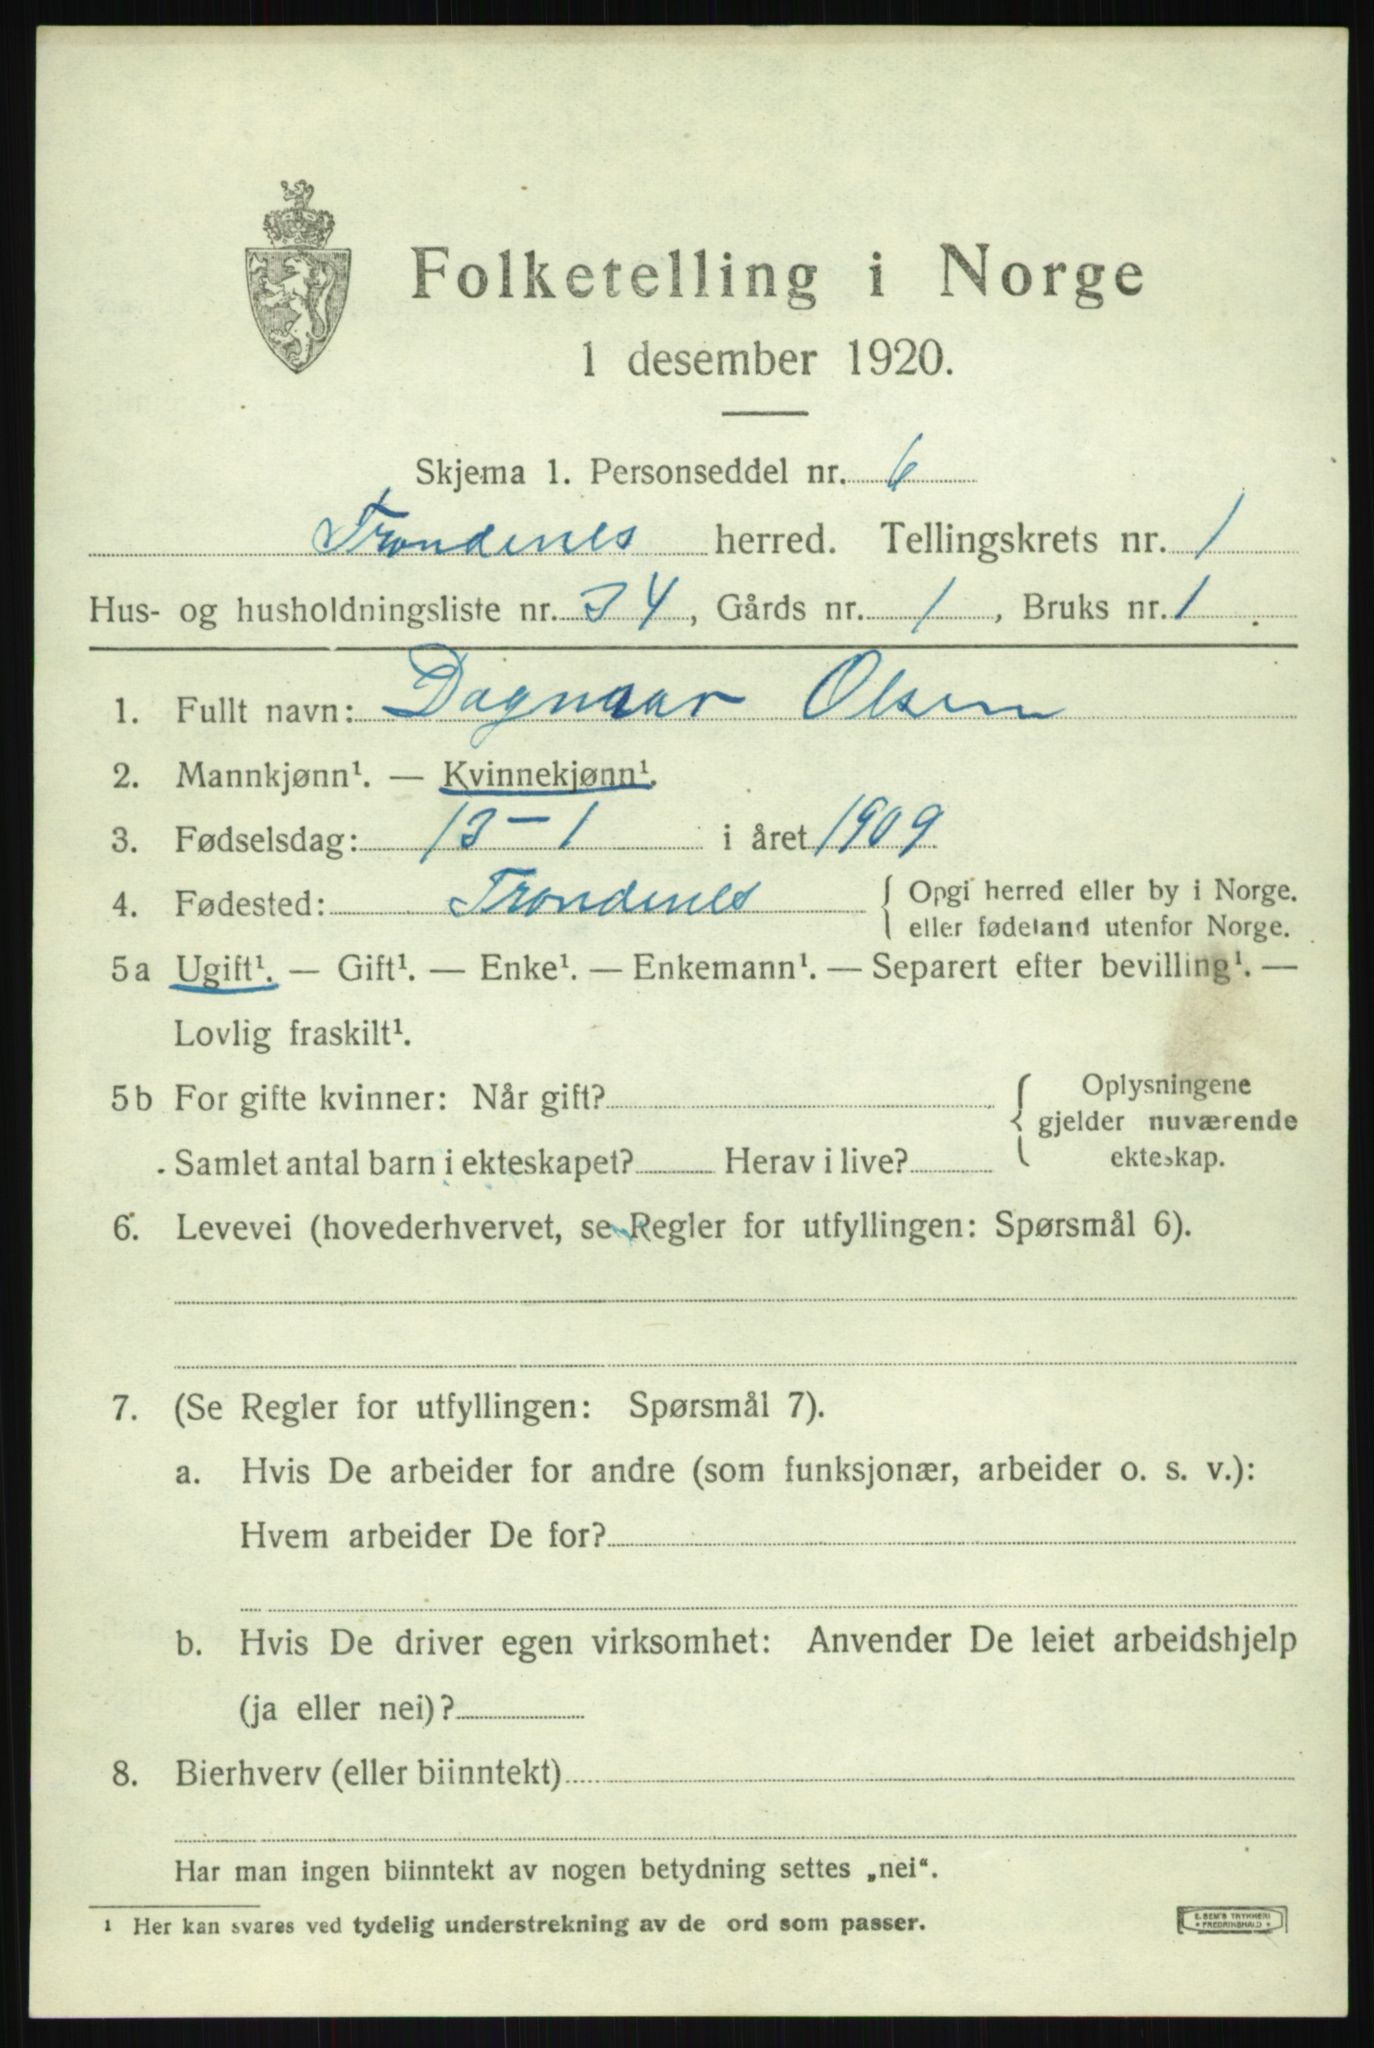 Folketelling i Norge
1 desember 1920.
Skjema 1. Personseddel nr. 6
Trondenes herred. Tellingskrets nr. 1
Hus- og husholdningsliste nr. 34, Gårds nr. 1, Bruks nr. 1
1. Fullt navn: Dagmaar Olsen
2. Mannkjønn¹. — Kvinnekjønn¹.
3. Fødselsdag: 13-1 i året 1909
4. Fødested: Trondenes { Opgi herred eller by i Norge.
eller fødeland utenfor Norge.
5a Ugift¹. — Gift¹. — Enke¹. — Enkemann¹. — Separert efter bevilling¹. —
Lovlig fraskilt¹.
5b For gifte kvinner: Når gift? { Oplysningene
gjelder nuværende
Samlet antal barn i ekteskapet? Herav i live? ekteskap.
6. Levevei (hovederhvervet, se Regler for utfyllingen: Spørsmål 6).
7. (Se Regler for utfyllingen: Spørsmål 7).
a. Hvis De arbeider for andre (som funksjonær, arbeider o. s. v.):
Hvem arbeider De for?
b. Hvis De driver egen virksomhet: Anvender De leiet arbeidshjelp
(ja eller nei)?
8. Bierhverv (eller biinntekt)
Har man ingen biinntekt av nogen betydning settes „nei“.
¹ Her kan svares ved tydelig understrekning av de ord som passer.
E. SEM'S TRYKKERI
* FREDRIKSHALD *